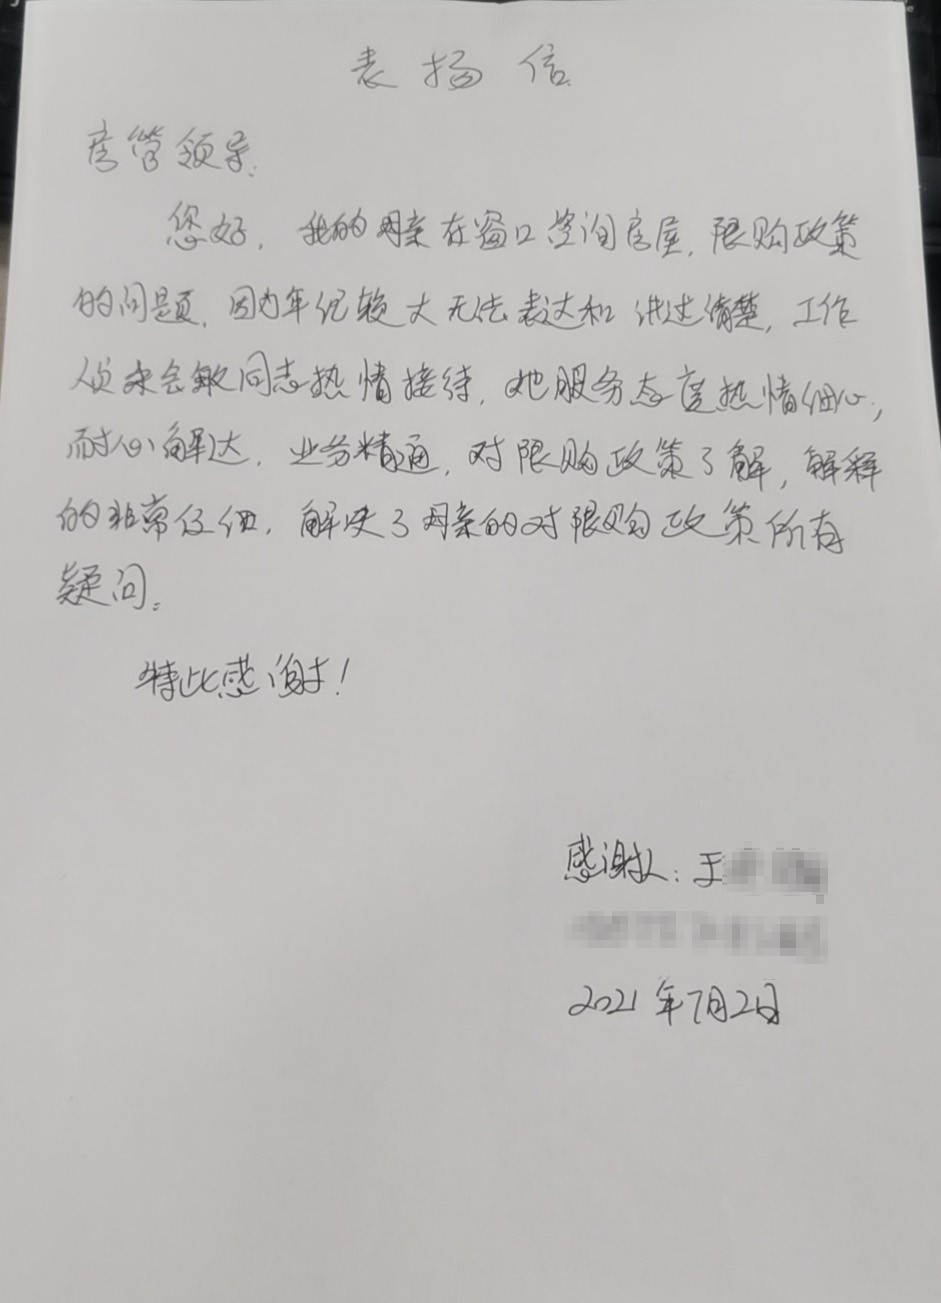 表扬信
房管领导:
您好，我的母亲在窗口咨询房屋，限购政策
的问题，因为年纪较大无法表达和讲述清楚，工作
人员宋会敏同志热情接待，她服务态度热情细心，
耐心解达，业务精通，对限购政策了解，解释
的非常仔细，解决了母亲的对限购政策所有
疑问。
特此感谢！
感谢人：王
2021年7月2日